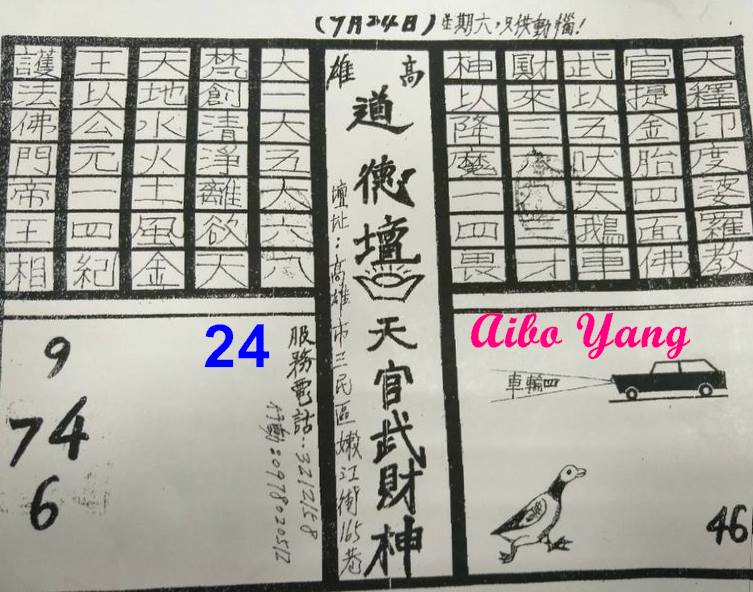 (7月24日)星期六,只供動惱!
天釋印度婆羅教
官提金胎四面佛
武以五吠天鵝車
財來三八三才
神以降魔一四畏
高雄
道德壇
天官武財神
壇址:高雄市三民區嫩江街165巷
大二大五人六
梵創清淨離欲天
天地水火土風金
王以公元一四紀
護法佛門帝王相
Aibo Yang
車輪四
46
服務電話:3212158
行動:0978020512
24
9
74
6